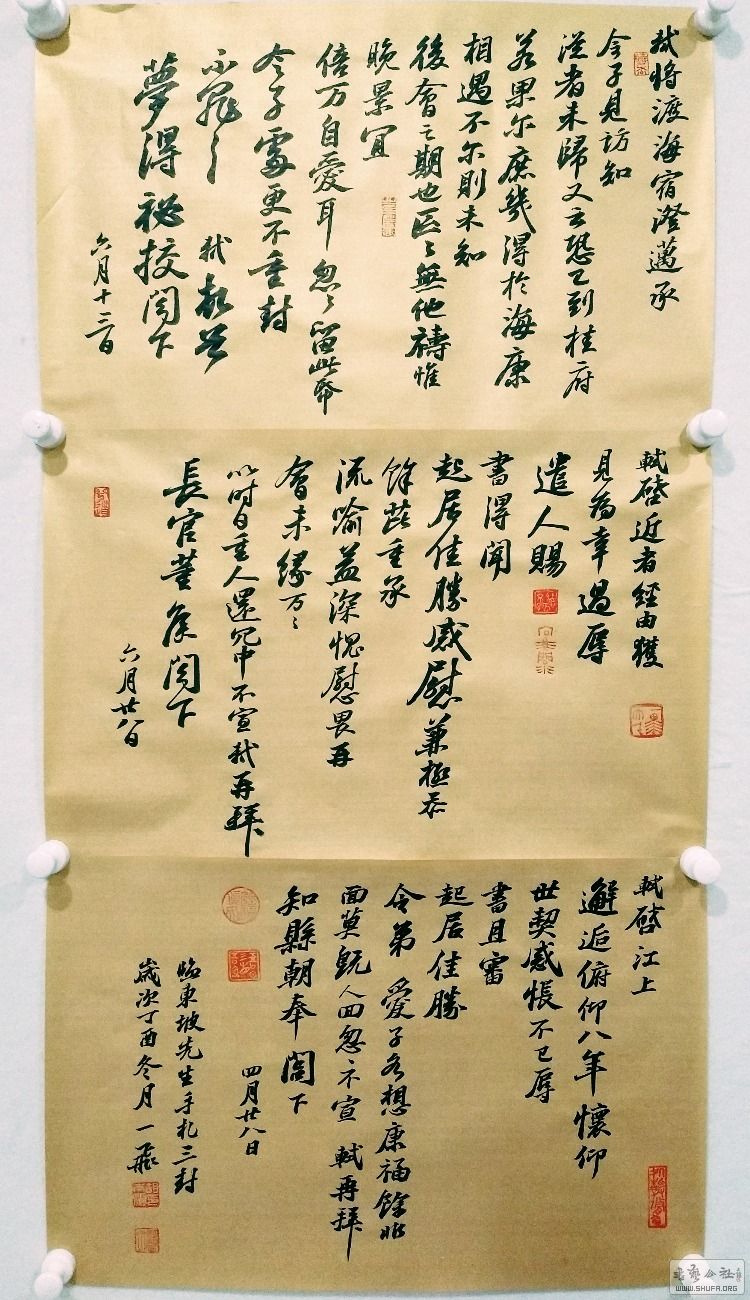 軾將渡海宿澄邁承
令子見訪知
從者未歸又云恐已到桂府
若果尔庶幾得於海康
相遇不尔則未知
後會之期也區〻無他禱惟
晚景宜
倍万自愛耳忽〻留此帋
令子處更不重封
不罪〻軾頓首
夢得祕挍閤下
六月十三日
軾啓近者經由獲
見為幸過辱
遣人賜
書得聞
起居佳勝感慰兼極忝
餘茈重承
流喻益深愧慰畏再
會未緣万〻
以时自重人還冗中不宣軾再拜
長官董侯閤下
六月廿八日
軾啓江上
邂逅俯仰八年懷仰
世契感悵不已辱
書且審
起居佳勝
令弟愛子各想康福餘非
面莫既人回忽〻不宣軾再拜
知縣朝奉閣下
四月廿八日
臨東坡先生手札三封
歲次丁酉冬月一飛
WWW.SHUFA.ORG